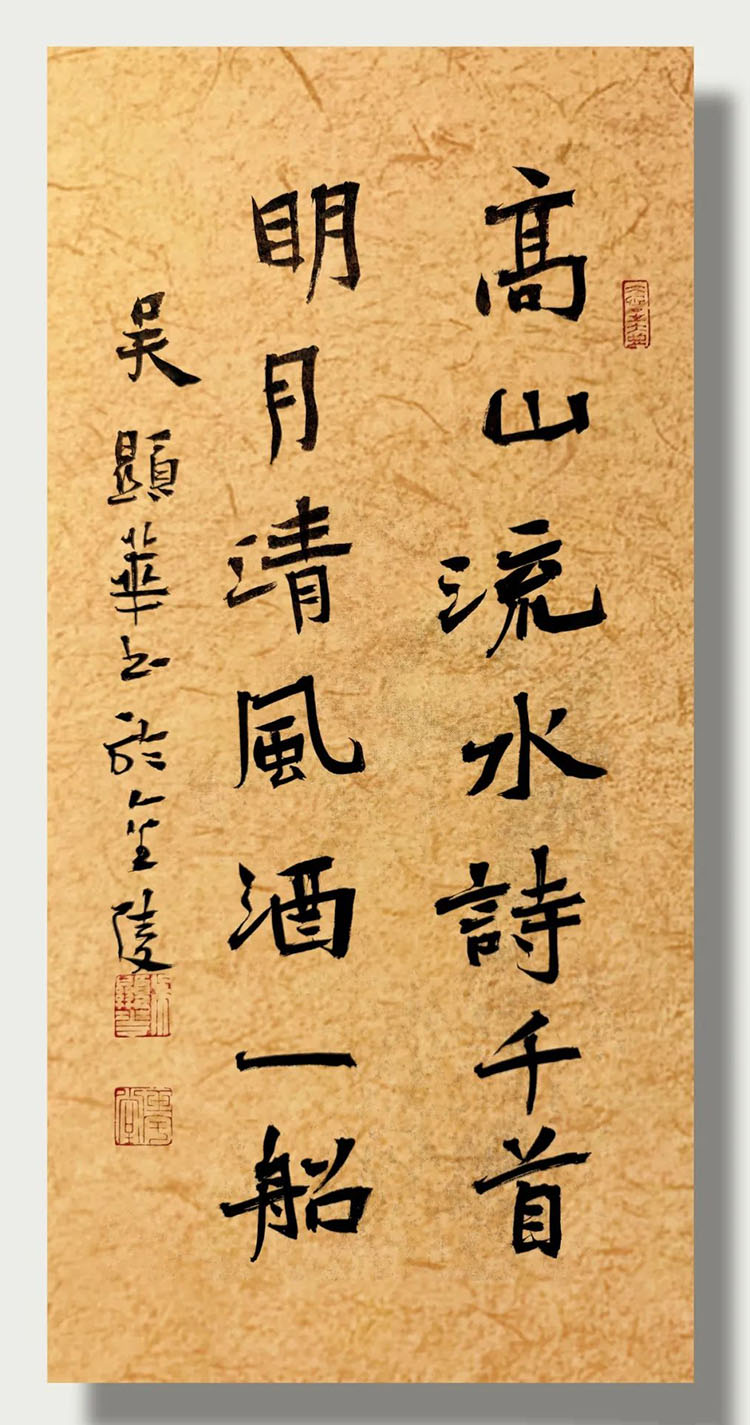 高山流水詩千首
明月清風酒一船
吳顯華書於金陵